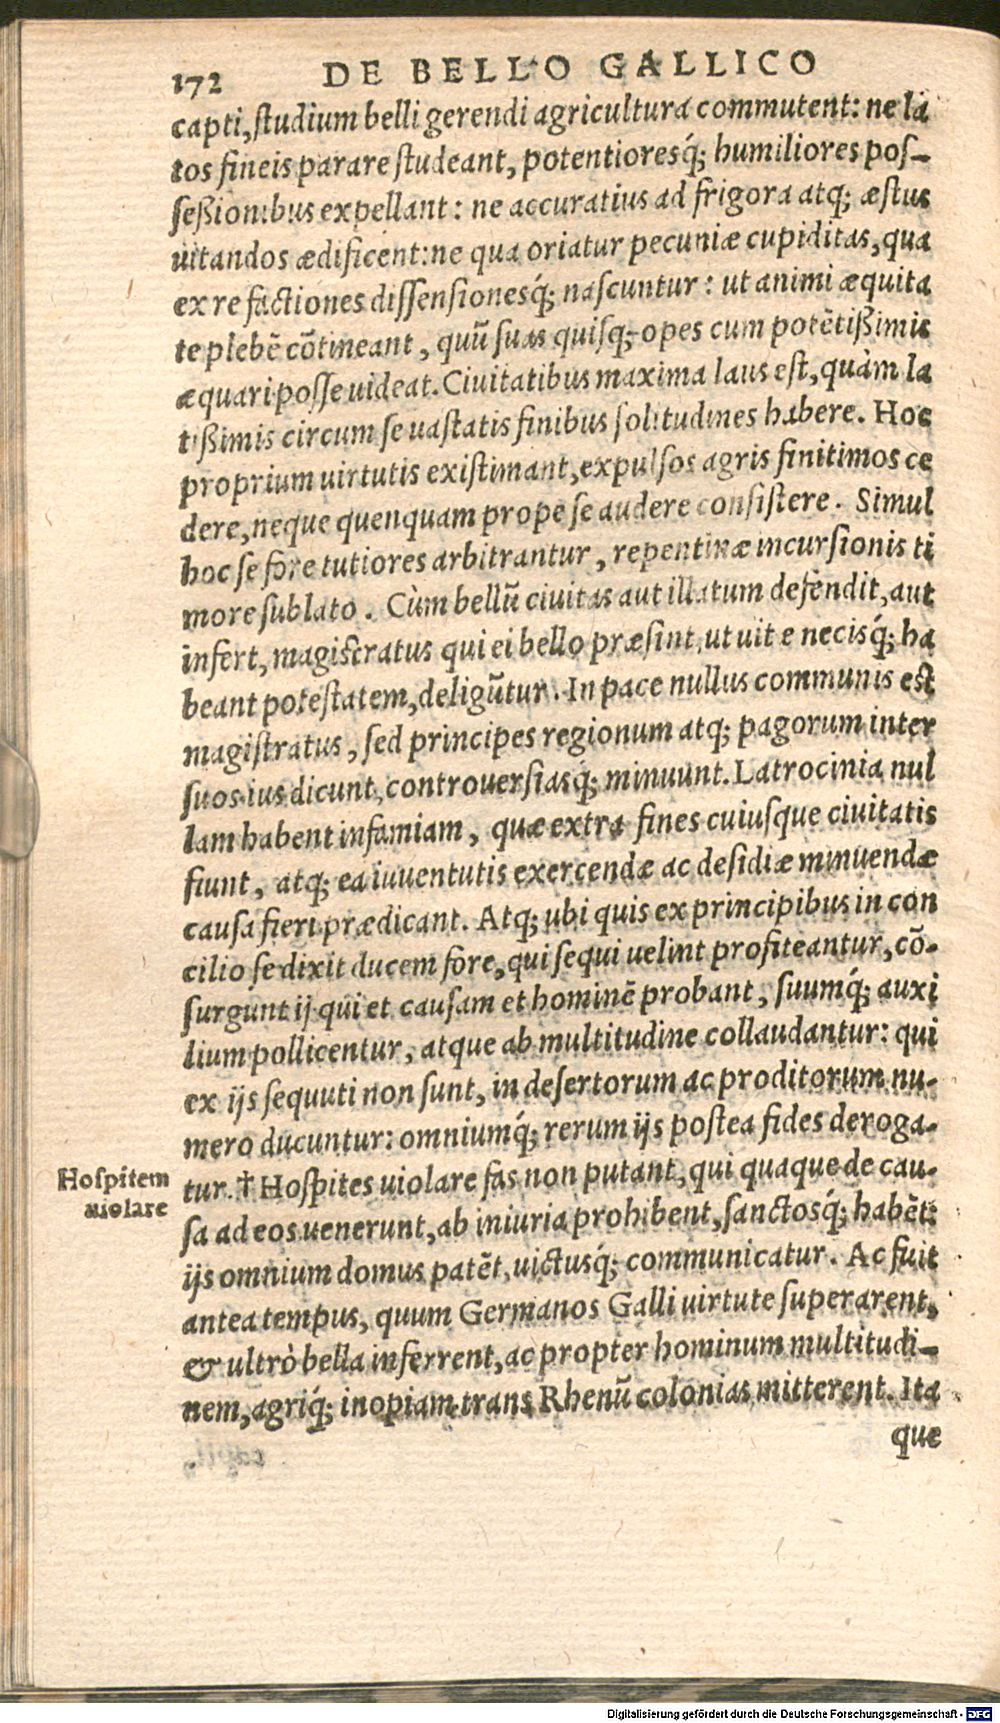 172 DE BELLO GALLICO
capti, ſtudium belli gerendi agricultura commutent: ne la
tos fineis parare ſtudeant, potentioresq́; humiliores poſ-
ſeßionibus expellant: ne accuratius ad frigora atq; æſtus
uitandos ædificent: ne qua oriatur pecuniæ cupiditas, qua
ex re factiones diſſenſionesq́; naſcuntur: ut animi æquita
te plebē cōtineant, quū ſuas quiſq; opes cum potētißimis
æquari poſſe uideat. Ciuitatibus maxima laus eſt, quàm la
tißimis circum ſe uaſtatis finibus ſolitudines habere. Hoc
proprium uirtutis exiſtimant, expulſos agris finitimos ce
dere, neque quenquam prope ſe audere conſiſtere. Simul
hoc ſe fore tutiores arbitrantur, repentinæ incurſionis ti
more ſublato. Cùm bellū ciuitas aut illatum defendit, aut
infert, magiſtratus qui ei bello præſint, ut uitę necisq́; ha
beant poteſtatem, deligūtur. In pace nullus communis eſt
magiſtratus, ſed principes regionum atq; pagorum inter
ſuos ius dicunt, controuerſiasq́; minuunt. Latrocinia nul
lam habent infamiam, quæ extra fines cuiuſque ciuitatis
fiunt, atq; ea iuuentutis exercendæ ac deſidiæ minuendæ
cauſa fieri prædicant. Atq; ubi quis ex principibus in con
cilio ſe dixit ducem fore, qui ſequi uelint profiteantur, cō-
ſurgunt ij qui et cauſam et hominē probant, ſuumq́; auxi
lium pollicentur, atque ab multitudine collaudantur: qui
ex ijs ſequuti non ſunt, in deſertorum ac proditorum nu-
mero ducuntur: omniumq́; rerum ijs poſtea fides deroga-
tur. † Hoſpites uiolare fas non putant, qui quaque de cau-
Hoſpitem
uiolare
ſa ad eos uenerunt, ab iniuria prohibent, ſanctosq́; habēt:
ijs omnium domus patēt, uictusq́; communicatur. Ac fuit
antea tempus, quum Germanos Galli uirtute ſuperarent,
& ultrò bella inferrent, ac propter hominum multitudi-
nem, agriq́; inopiam trans Rhenū colonias mitterent. Ita
que
Digitalisierung gefördert durch die Deutsche Forschungsgemeinschaft - DFG